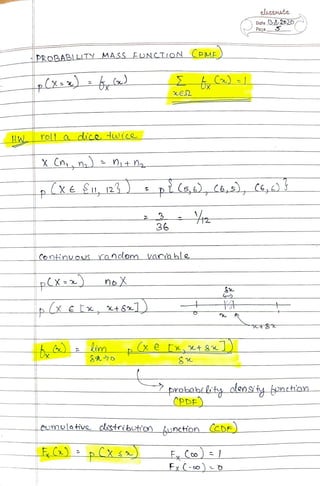 Date
Page 5
PROBABILITY MASS FUNCTION (PMF)
p(X=x) = fx(x)   Σ x∈Ω fx(x) = 1
HW roll a dice twice
X (n1, n2) = n1 + n2
p (X ∈ {11, 12}) = p{(5,6), (6,5), (6,6)}
= 3/36 = 1/12
continuous random variable
p(X=x) no X
p (X ∈ [x, x+δx])
δx
0 x 1
x+δx
fx(x) = lim δx→0 p(X ∈ [x, x+δx]) / δx
probability density function
(PDF)
cumulative distribution function (CDF)
Fx(x) = p(X ≤ x)   Fx(∞) = 1
Fx(-∞) = 0